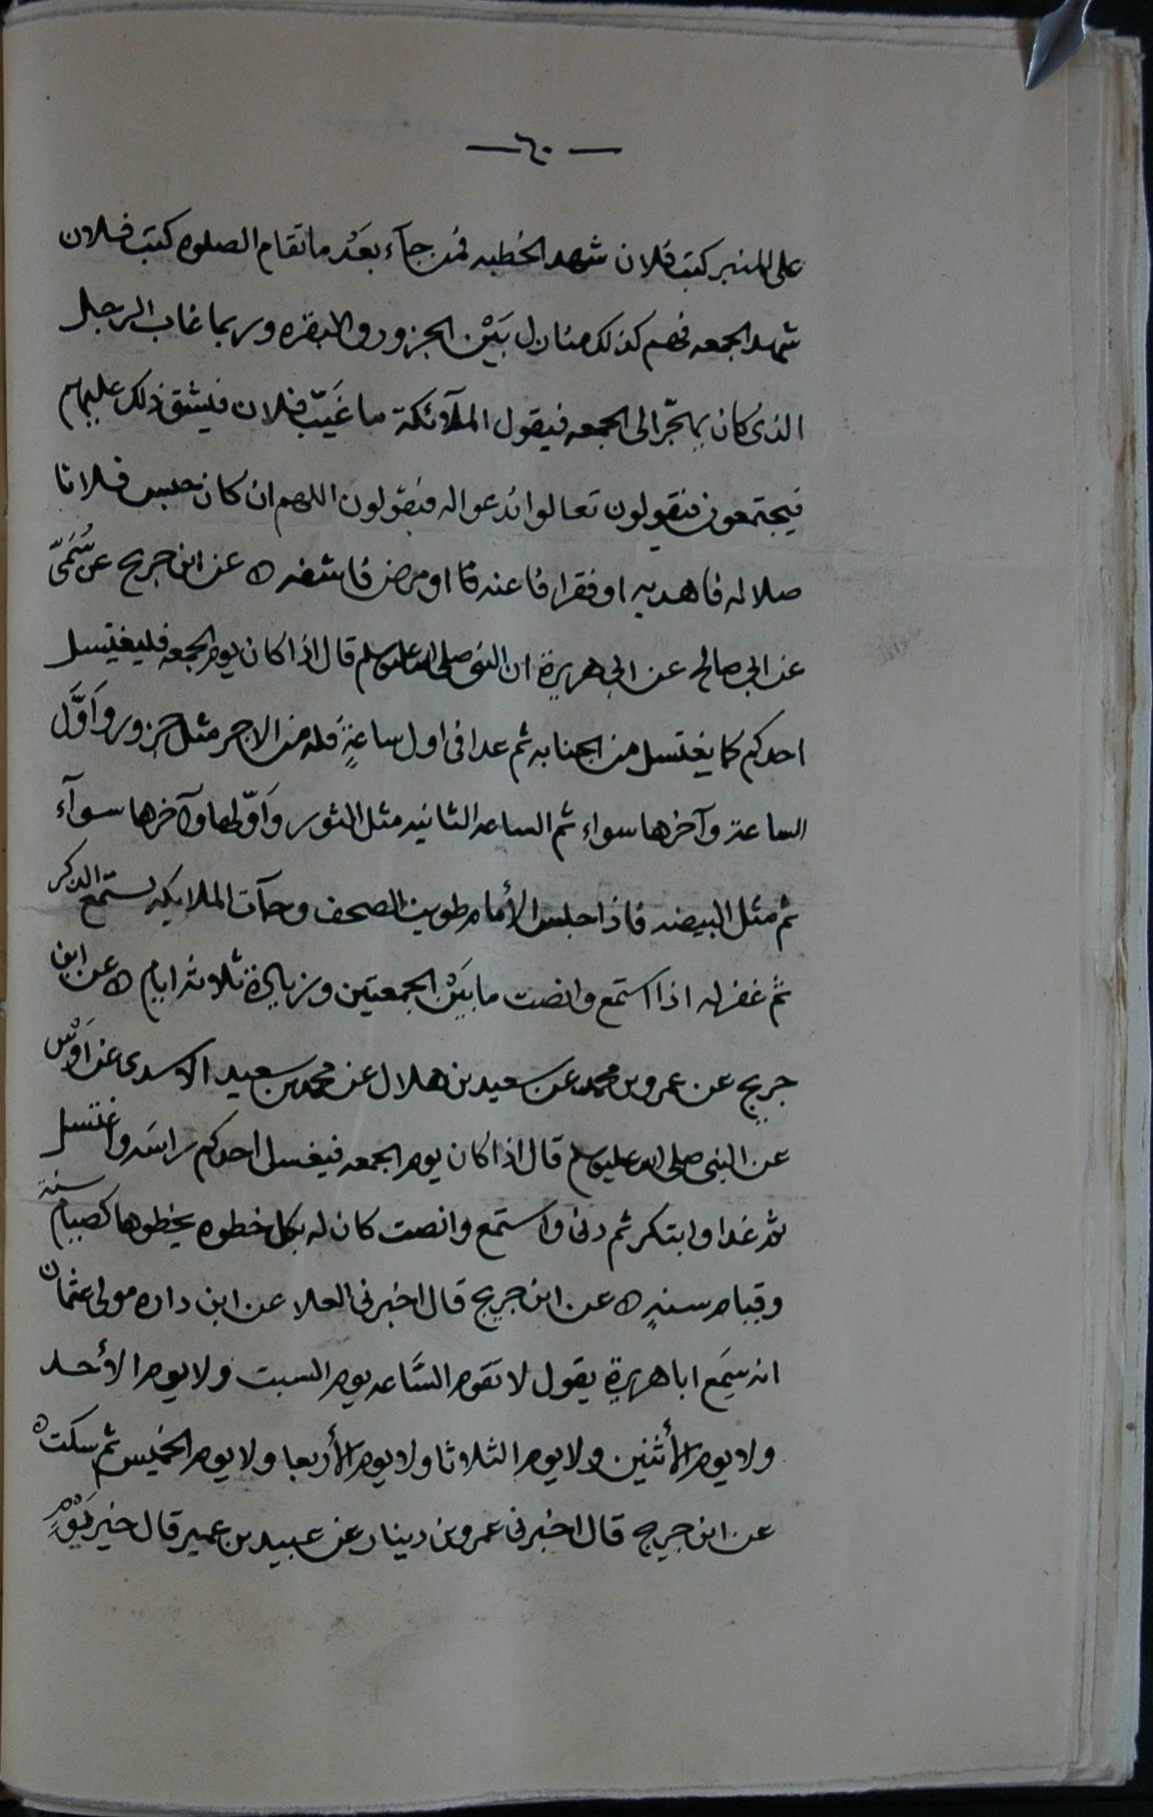 — ٦٠ —
على المنبر كتب فلان شهد الخطبه فمن جآء بعَد ما تقام الصلوه كتب فلان
شهد الجمعه فهم كذلك منازل بَيْن الجزور والبقره وربما غاب الرجل
الذى كان يهجّر الى الجمعه فيقول الملآئكة ما غَيّب فلان فيشق ذلك عليهم
فيجتمعون فيقولون تعالوا ندعوا له فيقولون اللهم ان كان حبس فلانا
ضلاله فاهديه او فقرا فاغنه او مرض فاشفه ه عن ابن جريج عن سُمَىّ
عن ابى صالح عن ابى هريرة ان النبى صلى الله عليه وسلم قال اذا كان يوم الجمعه فليغتسل
احدكم كما يغتسل من الجنابه ثم غدا فى اول ساعةٍ فله من الاجر مثل جزور وَاَوَّل
الساعة وآخرها سواء ثم الساعه الثانيه مثل الثور وَاَوّلها وآخرها سوآء
ثم مثل البيضه فاذا جلس الأمام طويت الصحف وجآت الملايكه تستمع الذكر
ثم غفر له اذا استمع وانصت ما بَيْن الجمعتين وزيادة ثلاثه ايام ه عن ابن
جريج عن عمرو بن محمد عن سعيد بن هلال عن محمد بن سعيد الاسدى عن اَوْس
عن النبى صلى الله عليه وسلم قال اذا كان يوم الجمعه فيغسل احدكم راسَه واغتسل
ثم غدا وابتكر ثم دنى واستمع وانصت كان له بكل خطوه يخطوها كصيام سنة
وقيام سنهٍ ه عن ابن جريج قال اخبرنى العلا عن ابن داره مولى عثمان
انه سَمِع ابا هريرة يقول لا تقوم السَّاعه يوم السبت ولا يوم الأحد
ولا يوم الأثنين ولا يوم الثلاثا ولا يوم الأربعا ولا يوم الخميس ثم سكت ه
عن ابن جريج قال اخبرنى عمرو بن دينار عن عبيد بن عمير قال خير يَوْمٍ